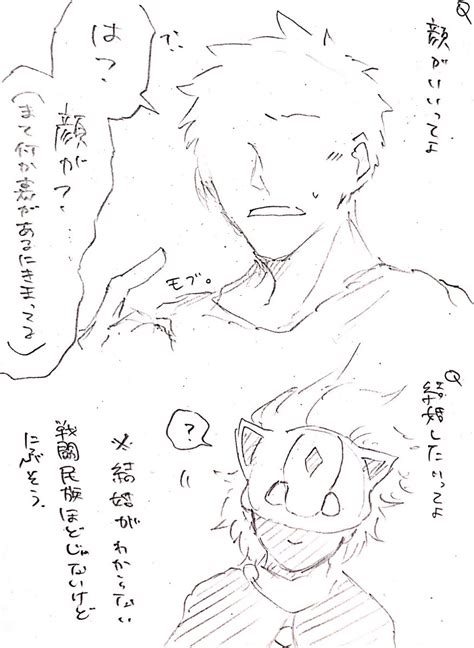 Q
顔がいいってよ
で、
は?
顔が?……
(まて何か裏があるにきまってる)
モブ。
Q
結婚したいってよ
?
※結婚がわからない
戦闘民族ほどじゃないけど
にぶそう。